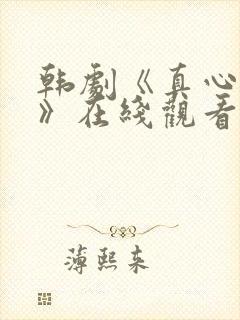 韩劇《真心
》在綫觀看
薄熙来